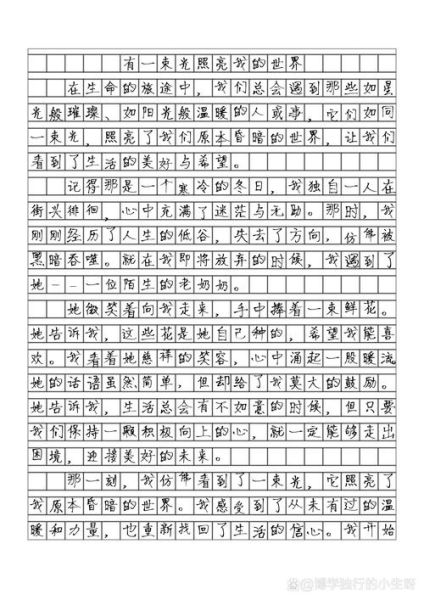 有一束光照亮我的世界
在生命的旅途中，我们总会遇到那些如星
光般璀璨、如阳光般温暖的人或事，它们如同
一束光，照亮了我们原本昏暗的世界，让我们
看到了生活的美好与希望。
记得那是一个寒冷的冬日，我独自一人在
街头徘徊，心中充满了迷茫与无助。那时，我
刚刚经历了人生的低谷，失去了方向，仿佛被
黑暗吞噬。就在我即将放弃的时候，我遇到了
她--一位陌生的老奶奶。
她微笑着向我走来，手中捧着一束鲜花。
她告诉我，这些花是她自己种的，希望我能喜
欢。我看着她慈祥的笑容，心中涌起一股暖流
她的话语虽然简单，但却给了我莫大的鼓励。
她告诉我，生活总会有不如意的时候，但只要
我们保持一颗积极向上的心，就一定能够走出
困境，迎接美好的未来。
那一刻，我仿佛看到了一束光，它照亮了
我原本昏暗的世界。我感受到了从未有过的温
暖和力量，也重新找回了生活的信心。我开始
@博学独行的小生呀